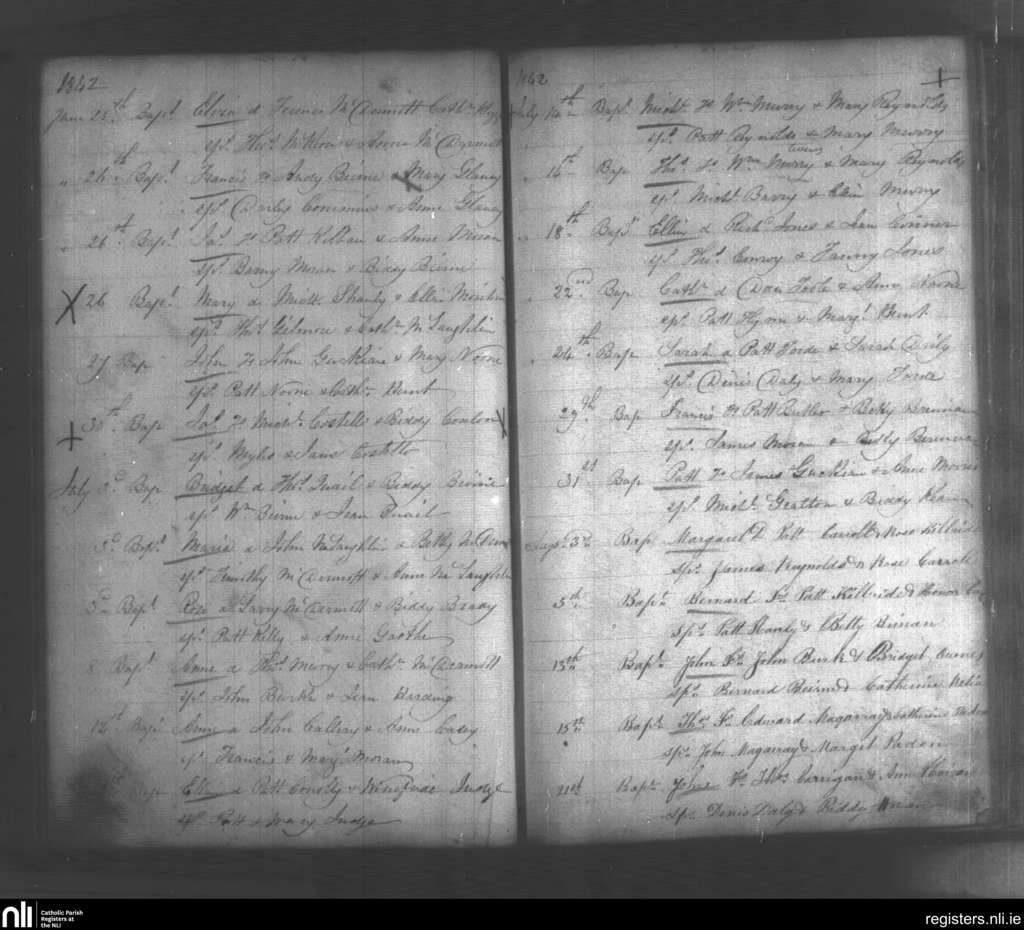 1842
June 23th Bapt Eliza d Terence McDermott Cath
sps Thos & Anne McDermott
" 24th Bapt Francis F Andy Beirne & Mary Glancy
sps Darby Commins & Anne Glancy
" 26th Bapt Jas F Patt Killian & Anne Moran
sps Barny Moran & Biddy Beirne
X 26 Bapt Mary d Michl Shanly & Ellin
sps Thos Gilmore & Cathn McLaughlin
27 Bap John F John Guckian & Mary Noone
sps Patt Noone & Cathn Hunt
+ 30th Bap Jas F Michl Costello & Biddy Conlon
sps Myles & Jane Costello
July 3d Bap Bridget d Thos Quail & Biddy Beirne
sps Wm Beirne & Jean Quail
3d Bapt Maria d John McLaughlin & Betty
sps Timothy McDermott & Anne McLaughlin
5th Bapt Rose d Larry McDermott & Biddy Brady
sps Patt Kelly & Anne
8 Bapt Anne d Thos Murry & Cathn McDermott
sps John Burke & Jean Harding
12th Bapt Anne d John Callery & Anne Casey
sps Francis & Mary Moran
Bap Ellen d Patt Conolly & Winefride Judge
sps Patt & Mary Judge
1842
+
July 14th Bapt Michl F Wm Murry & Mary Reynolds
sps Patt Reynolds & Mary Murry
" 14th Bap Thos F Wm Murry & Mary Reynolds
twins
sps Michl Barry & Ellin Murry
" 18th Bapt Ellin d Richd Jones & Jean Connor
sps Thos Conroy & Fanny Jones
" 22nd Bap Cathn d Dan Toole & Anne Noone
sps Patt Flynn & Margt Hunt
" 24th Bap Sarah d Patt Forde & Sarah
sps Denis Daly & Mary Forde
29th Bap Francis F Patt Butler & Betty Brennan
sps James Moran & Betty Brennan
31st Bap Patt F James Guckian & Anne Morris
sps Michl Gratton & Biddy
Augt 3d Bap Margaret D Patt Carroll & Rose Kilbride
sps James Reynolds & Rose Carroll
5th Bapt Bernard Fs Patt Kilbride & Honor
sps Patt Hanly & Betty
13th Bapt John Fs John Burk & Bridget
sps Bernard Beirne & Catherine
15th Bapt Thos Fs Edward Magarray & Catherine
sps John Magarray & Margit Padon
21st Bapt John Fs Thos Corrigan & Ann
sps Denis Daly & Biddy
nli Catholic Parish
Registers at
the NLI
registers.nli.ie